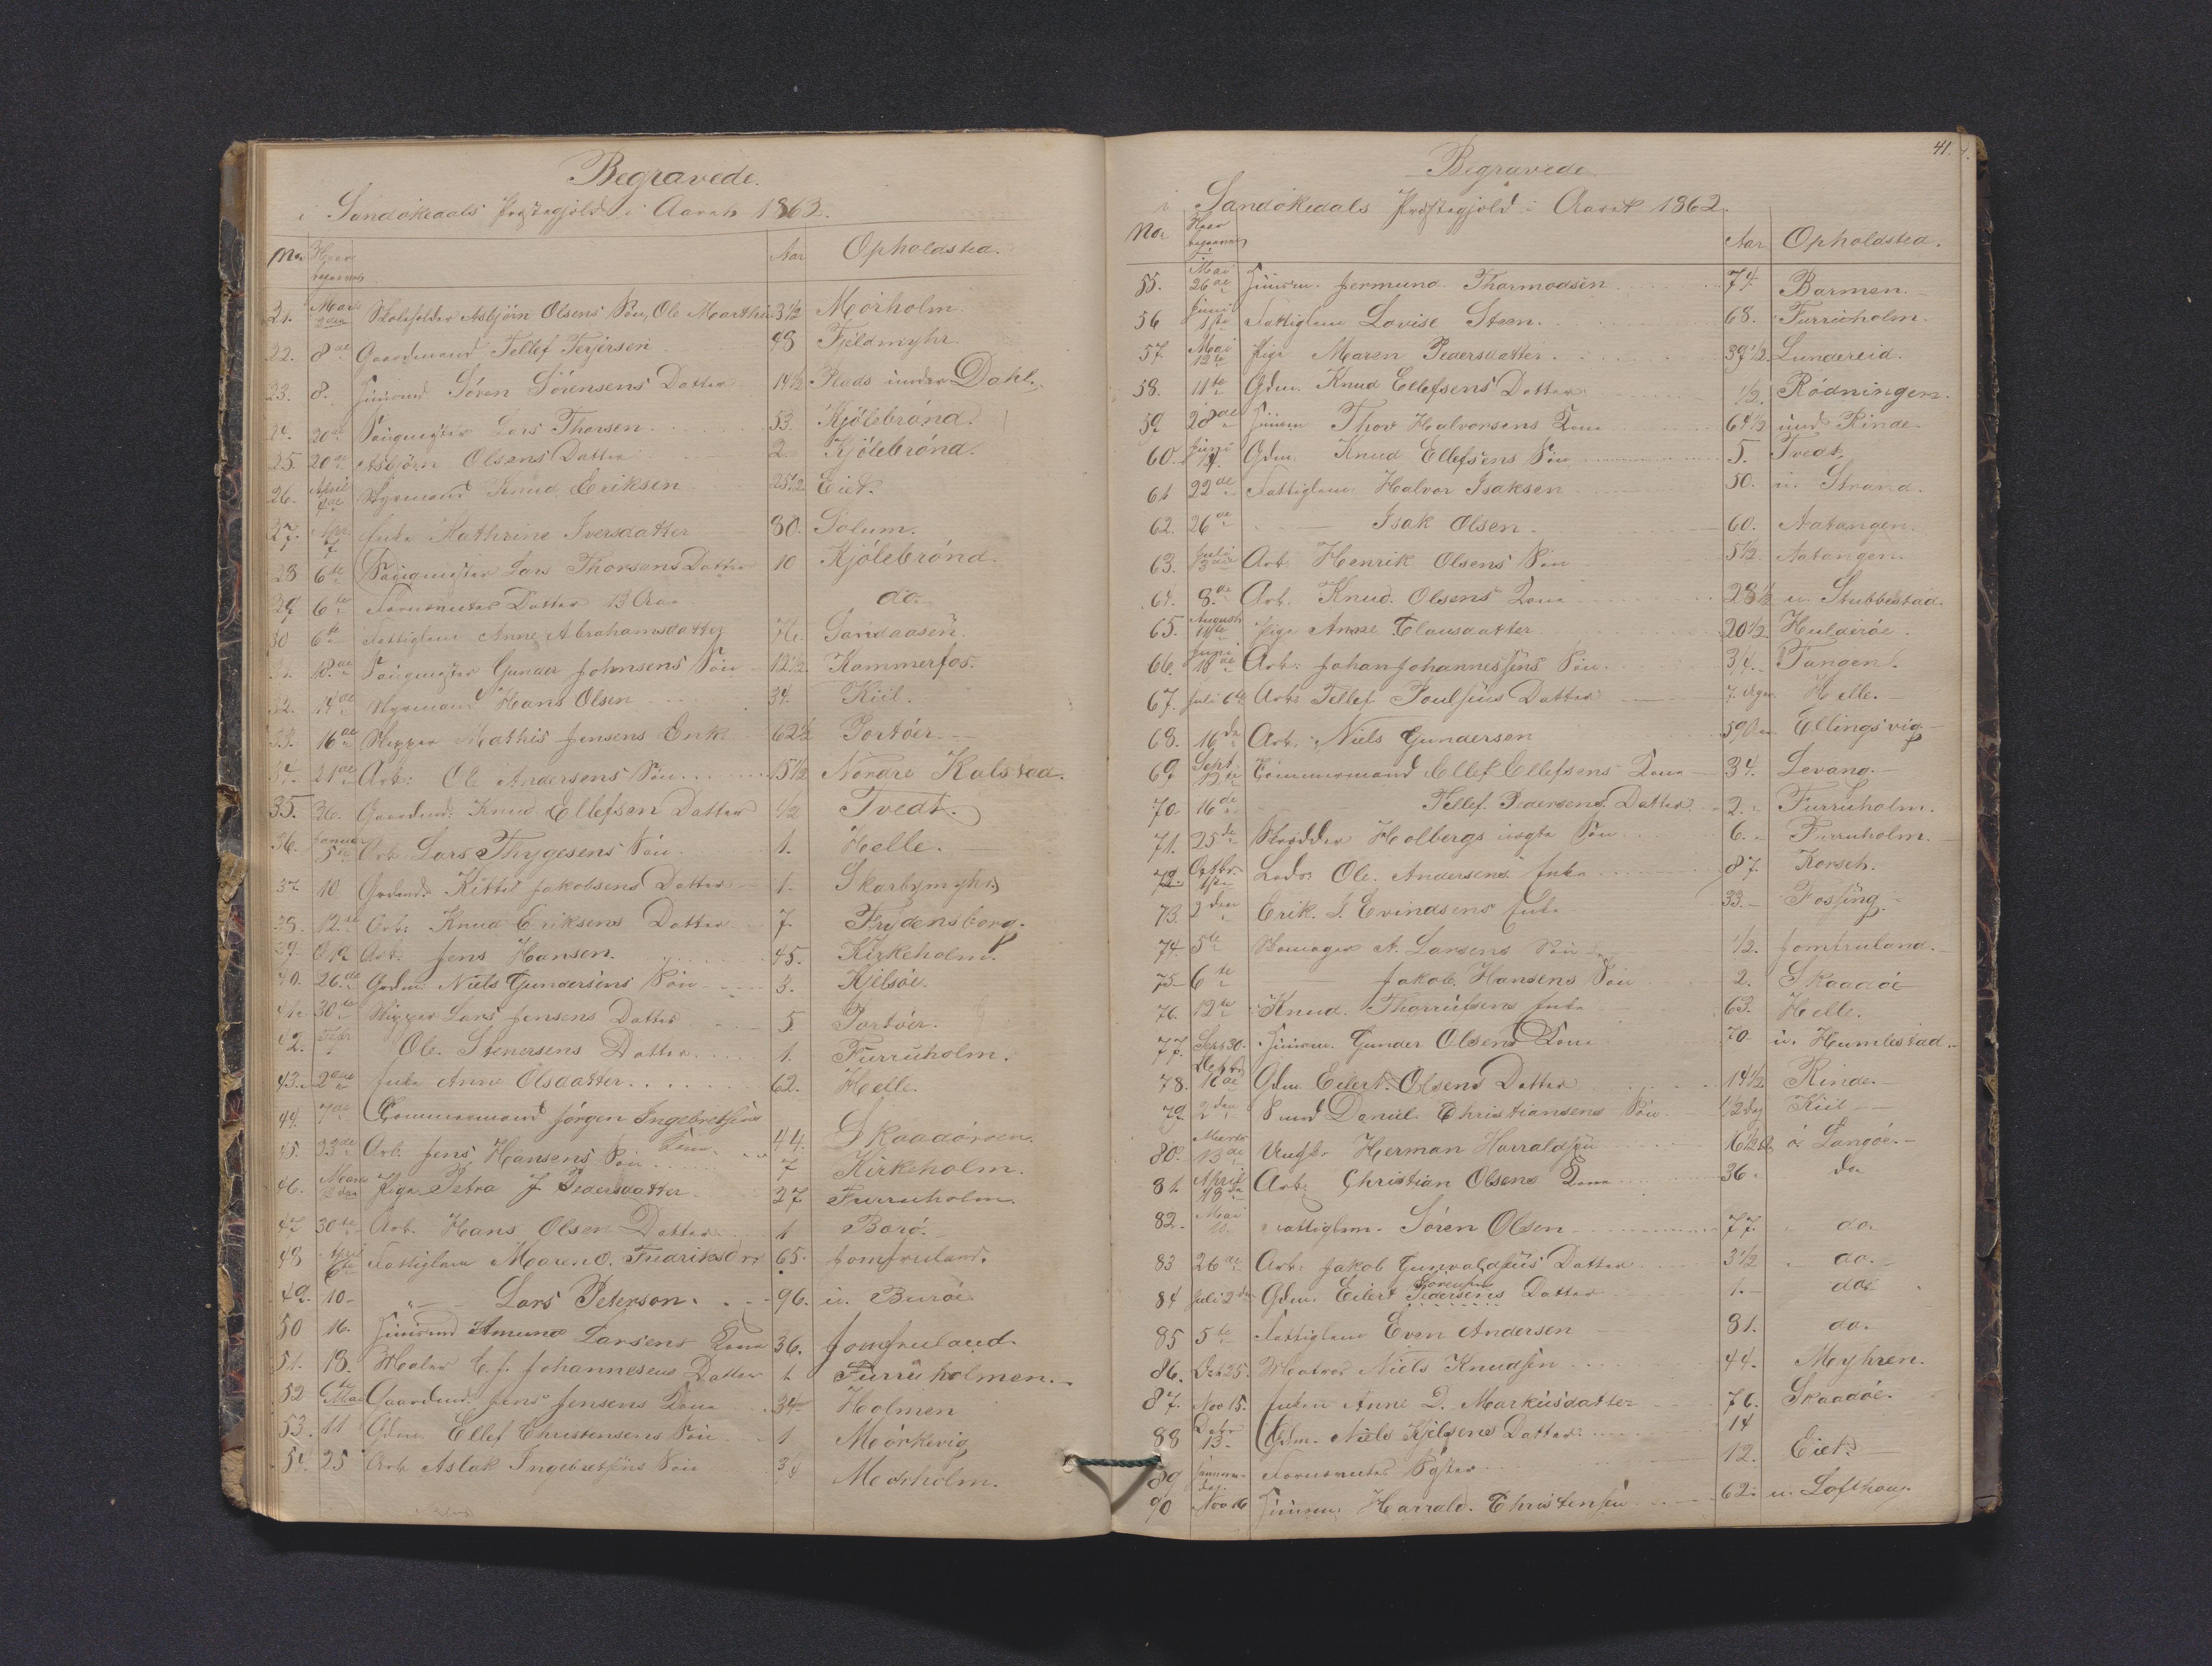 Begravede.
i Sandökedals Præstegjeld i Aaret 1862.
No Hvor begravet Aar Opholdsted.
21. Marts 2den Skoleholder Asbjörn Olsens Sön, Ole Marthin 3 1/2 Mörholm
22. 8de Gaardmand Tellef Terjersen 48 Fjeldmyhr.
23. 8. Huusmd Sören Sörensens Datter 14 1/2 Plads under Dahl.
24. 20de Saugmester Lars Thorsen 53. Kjölebrönd.
25. 20de Asbjörn Olsens Datter 2. Kjölebrönd.
26. April 4de Styrmand Knud Eriksen 25 1/2 Eiet.
27. 7 Enke Kathrine Iversdatter 80. Solum.
28 6te Saugmester Lars Thorsens Datter 10 Kjölebrönd.
29 6te Forusnevtes Datter 13 Aar do.
30 6te Fattiglem Anne Abrahamsdatter Sandaasen.
31. 18de Saugmester Gunder Johnsens Sön 12 1/2 Kammerfos.
32. 14de Styrmand Hans Olsen 34. Kiil.
33. 16de Skipper Mathis Jensens Enke 62 1/2 Portöer.
34. 21de Arb: Ole Andersens Sön 15 1/2 Nordre Kalstad.
35. 26. Gaardmd: Knud Ellefsen Datter 1/2 Tvedt.
36. Januar 5te Arb. Lars Thygesens Sön 1. Helle.
37 10 Grdmd. Kittel Jakobsens Datter 1. Skarbymyhr
38. 12te Arb: Knud Eriksens Datter 7. Frydensborg.
39. Arb. Jens Hansen. 45. Kirkeholm.
40. 26.de Grdm: Niels Gundersens Sön 3. Kjelsöe.
41. 30te Skipper Lars Jensens Datter 5. Portöer.
42. Febr Ole. Stenersens Datter 1. Furruholm.
43. 2den Enke Anne Olsdatter. 62. Helle.
44. 7de Tömmermand Jörgen Ingebretsens
Kone 44. Skaadöroen.
45. 23de Arb. Jens Hansens Sön 7 Kirkeholm.
46. Marts 2den Pige Petra J Pedersdatter 27 Furruholm.
47 30te Arb. Hans Olsen Datter 1 Barö.
48 April 6te Fattiglem Maren O. Fredriksdtr 65. Jomfruland.
49. 10 " Lars Peterson. 96. u. Buröe
50 16. Huusmd Amund Larsens Kone 36. Jomfruland.
51. 18. Maler C. J. Johannesens Datter 1 Furruholmen.
52 6te Mai Gaardmd. Jens Jensens Kone 34 Holmen
53. 11 Gdm. Ellef Christensens Sön 1 Mörkevig
54. 25 Arb Aslak Ingebretsens Sön 34 Morholm.
41.
Begravede
i Sandökedals Præstegjeld i Aaret 1862.
No. Hvor begravet Aar Opholdsted.
55. Mai 26de Huusm. Jermund Thormodsen 74. Barmen.
56 Juni 1ste Fattiglem Lovise Steen. 68. Furruholm.
57. Mai 12te Pige Maren Pedersdatter 39 1/2. Lundereid.
58. 11te Gdm. Knud Ellefsens Datter 1/2. Rödningen.
59 28de Huusm Thov Halvorsens Kone 64 1/2 und Rinde
60. Juni Gdm. Knud Ellefsens Sön 5. Tvedt.
61 22de Fattiglem Halvor Isaksen 50. u. Strand.
62. 26de — Isak Olsen. 60. Aatangen.
63. Juli 13de Arb. Henrik Olsens Sön 5 1/2. Aatangen.
64. 8.de Arb. Knud. Olsens Kone 28 1/2 u. Stubbestad.
65. August Pige Anne Clausdatter 20 1/2. Hulderöe.
66. Juni 18de Arb: Johan Johannessens Sön. 3/4. Tangen.
67. Juli 6te Arb: Tellef Poulsens Datter 7. dage Helle.
68. 16de Arb: Niels Gundersen 59 Ellingsvig
69 Sept 12te Tömmermand Ellef Ellefsens Kone 34. Levang.
70. 16de Tellef Pedersens Datter 2. Furruholm.
71. 25de Skrædder Holbergs uegte Sön 6. Furruholm.
72. Octbr. 1ste Lods: Ole. Andersens Enke 87. Korseh.
73. 2den Erik. J. Evindsens Enke 33. Fossing.
74. 5te Skomager A. Larsens Sön 1/2. Jomfruland.
75 6te — Jakob Hansens Sön 2. Skaadöe
76. 12te Knud. Thorrulsens Enke 63. Helle.
77. Sept 30. Huusm. Gunder Olsens Kone 70 u. Humlestad.
78. Octbr 16de Gdm Eilert Olsens Datter 14 1/2 Rinde.
79. 2den Daniel Christiansens Sön. 1/2 dag Kiil
80. Marts 13de Ungk. Herman Harraldsen 16 1/2 ö. Langöe.
81. April 18de Arb: Christian Olsens Kone 36. do
82. Mai 11. Fattiglem. Sören Olsen 77. do.
83 26de Arb: Jakob Gunvaldsens Datter 3 1/2 do.
84 Juli 2den Gdm. Eilert Pedersens Sörensen Datter 1. do.
85 5te Fattiglem Even Andersen 81. do.
86. Oct 25. Matros Niels Knudsen 44. Myhren.
87. Nov 15. Enken Anne D. Markusdatter 76. Skaadöe.
88 Debr 13. Gdm. Niels Kjelsens Datter 14
89 samme dag. Forusnevtes Syster 12. Eiet
90 Nov 16 Huusm: Harrald. Christensen 62. u. Lofthoug.